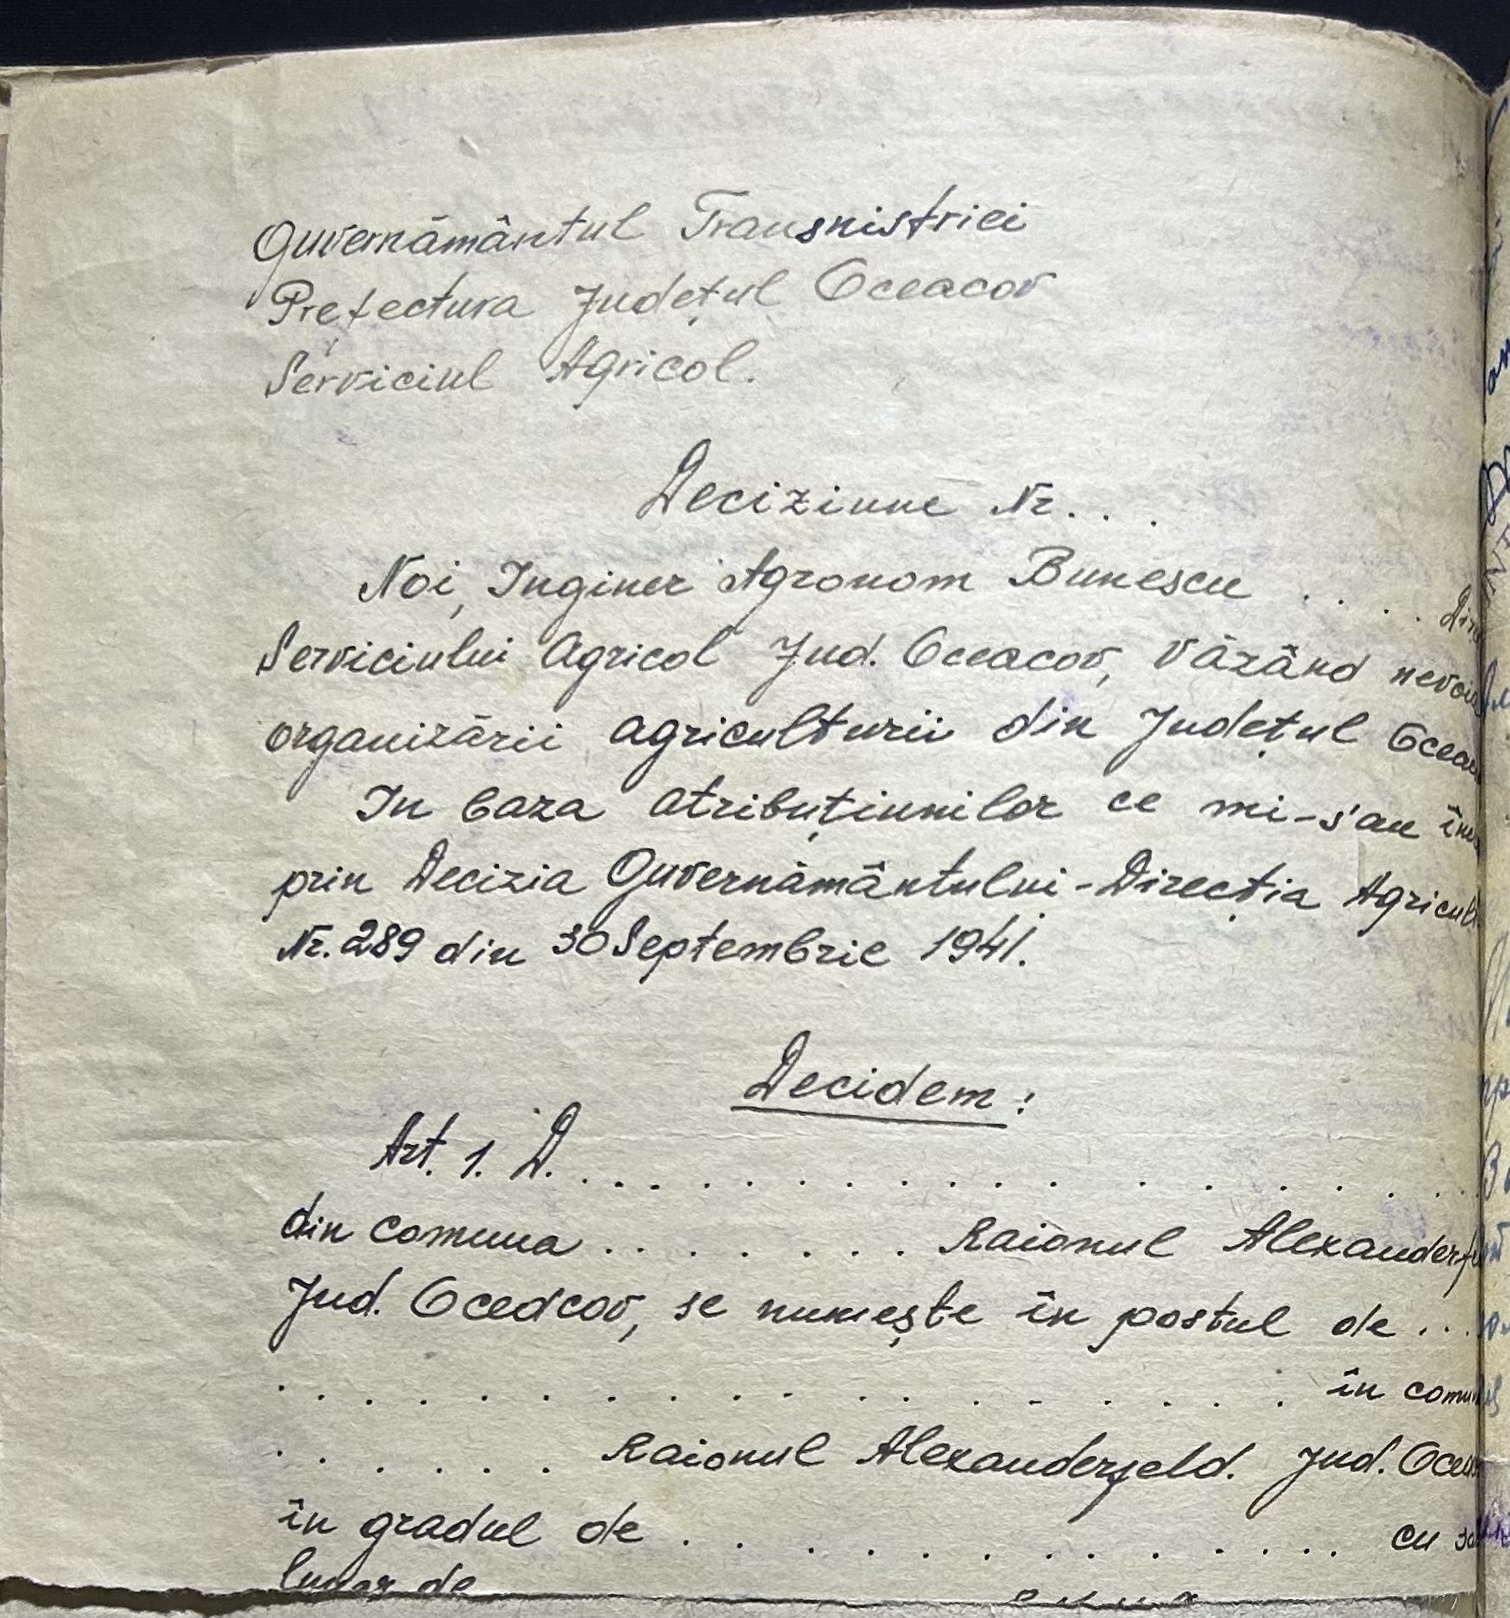 Guvernământul Transnistriei
Prefectura Județul Oceacov
Serviciul Agricol.
Deciziune Nr. . .
Noi, Inginer Agronom Bunescu . . . .
Serviciului Agricol Jud. Oceacov, Văzând
organizării agriculturii din Județul
In baza atribuțiunilor ce mi-s'au
prin Decizia Guvernământului-Direcția
Nr. 289 din 30 Septembrie 1941.
Decidem:
Art. 1. D. . . . . . . . . . . . . . . . . .
din comuna . . . . . . . . Raionul
Jud. Ocedcov, se numește în postul de ...
. . . . . . . . . . . . . . . . . . . în
. . . . . . . Raionul Alexanderfeld. Jud.
în gradul de . . . . . . . . . . . . . . . cu
lunar de